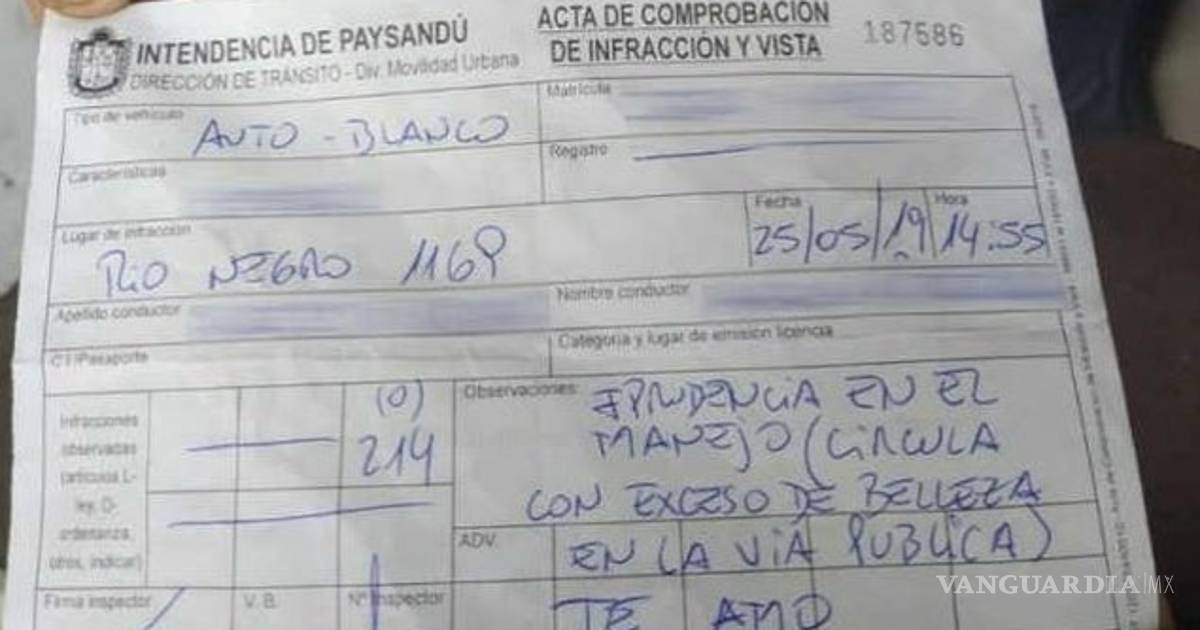 INTENDENCIA DE PAYSANDÚ
DIRECCIÓN DE TRÁNSITO - Div. Movilidad Urbana
ACTA DE COMPROBACIÓN
DE INFRACCIÓN Y VISTA
187586
Tipo de vehículo
AUTO - BLANCO
Matrícula
Características
Registro
Lugar de infracción
RIO NEGRO 1169
Fecha
25/05/19
Hora
14:55
Apellido conductor
Nombre conductor
C.I./Pasaporte
Categoría y lugar de emisión licencia
Infracciones
observadas
(artículos L-
ley, O-
ordenanza,
otros, indicar)
(O)
214
Observaciones:
IPRUDENCIA EN EL
MANEJO (CIRCULA
CON EXCESO DE BELLEZA
EN LA VIA PUBLICA)
ADV.
TE AMO
Firma inspector
V. B.
Nº Inspector
VANGUARDIA|MX